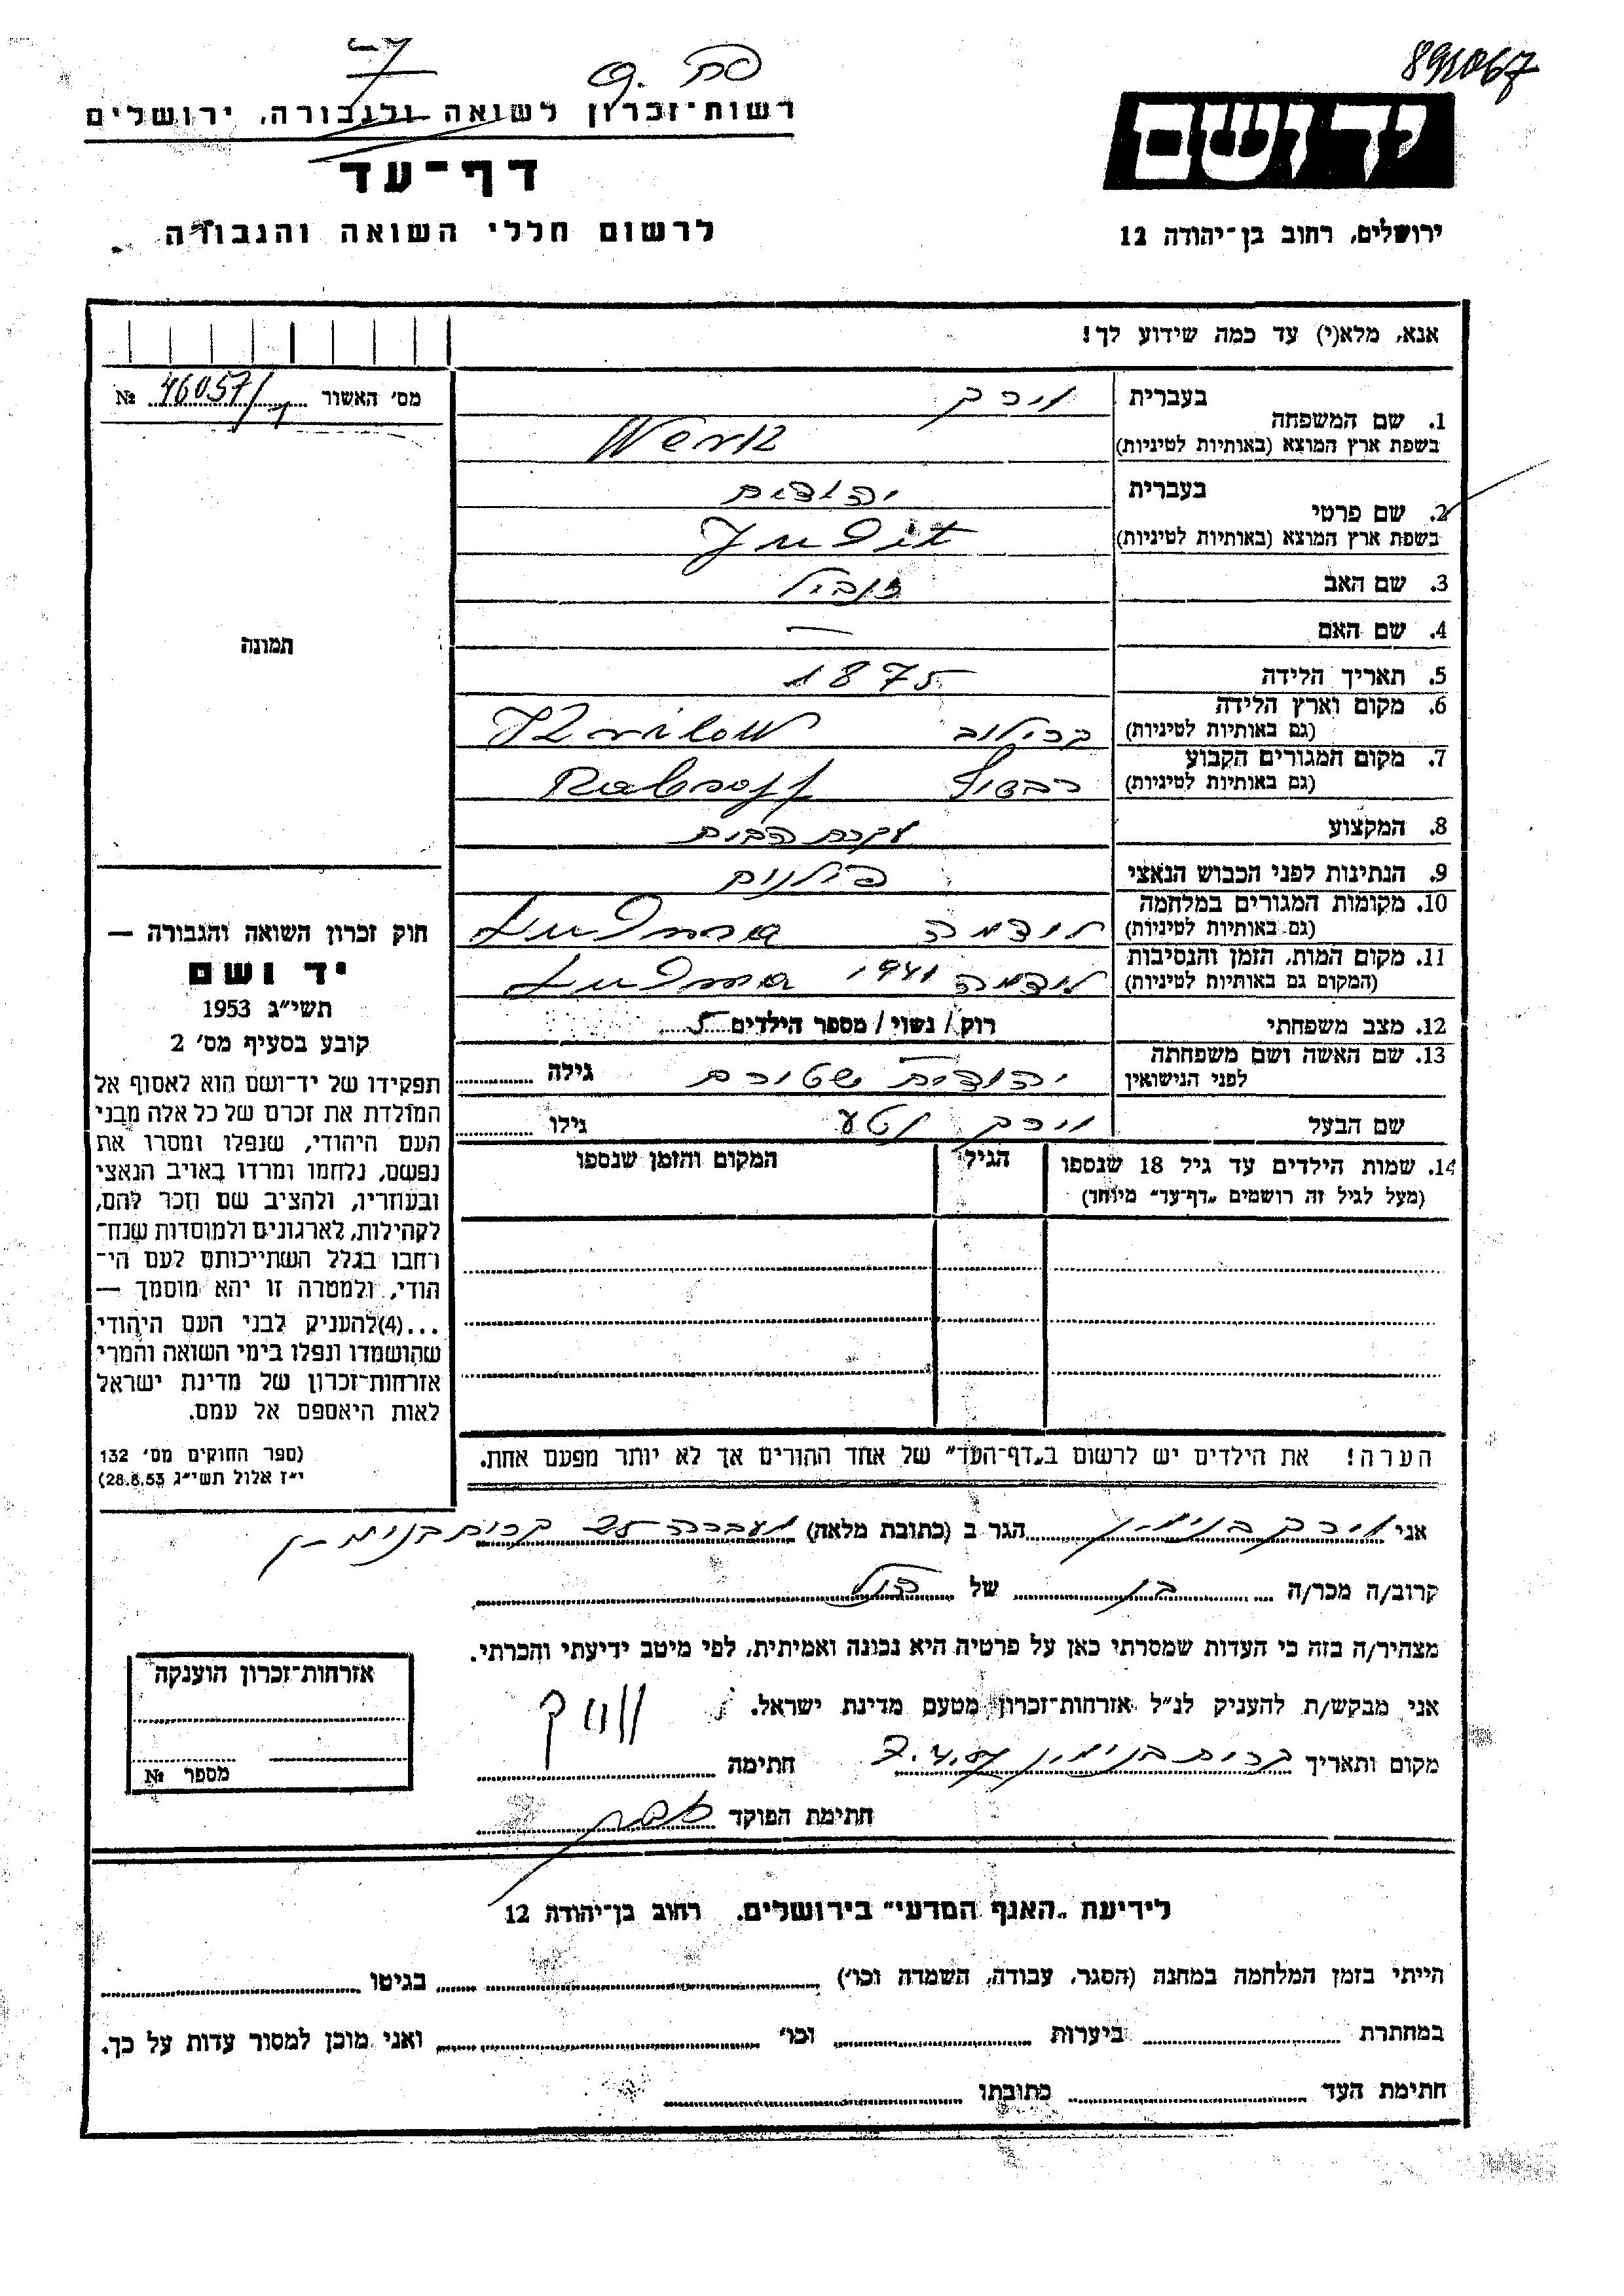 891067
רשות־זכרון לשואה ולגבורה, ירושלים
דף־עד
לרשום חללי השואה והגבורה
יד ושם
ירושלים, רחוב בן־יהודה 12
אנא, מלא(י) עד כמה שידוע לך!
מס׳ האשור № 46057/
1. שם המשפחה
בעברית ורק
בשפת ארץ המוצא (באותיות לטיניות) Werk
2. שם פרטי
בעברית יהודית
בשפת ארץ המוצא (באותיות לטיניות) Judit
3. שם האב
4. שם האם —
5. תאריך הלידה 1875
6. מקום וארץ הלידה
(גם באותיות לטיניות) קרילוב Krilow
7. מקום המגורים הקבוע
(גם באותיות לטיניות) רבשוף Rabsoff
8. המקצוע עקרת הבית
9. הנתינות לפני הכבוש הנאצי פולנית
10. מקומות המגורים במלחמה
(גם באותיות לטיניות) לודמה Ludma
11. מקום המות, הזמן והנסיבות
(המקום גם באותיות לטיניות) לודמה 1941 Ludma
12. מצב משפחתי רוק/ נשוי/ מספר הילדים 5
13. שם האשה ושם משפחתה
לפני הנישואין יהודית שטורם גילה
שם הבעל ורק נטע גילו
14. שמות הילדים עד גיל 18 שנספו
(מעל לגיל זה רושמים „דף־עד״ מיוחד)
הגיל
המקום והזמן שנספו
הערה! את הילדים יש לרשום ב„דף־העד״ של אחד ההורים אך לא יותר מפעם אחת.
תמונה
חוק זכרון השואה והגבורה —
יד ושם
תשי״ג 1953
קובע בסעיף מס׳ 2
תפקידו של יד־ושם הוא לאסוף אל
המולדת את זכרם של כל אלה מבני
העם היהודי, שנפלו ומסרו את
נפשם, נלחמו ומרדו באויב הנאצי
ובעוזריו, ולהציב שם וזכר להם,
לקהילות, לארגונים ולמוסדות שנח־
רחבו בגלל השתייכותם לעם הי־
הודי, ולמטרה זו יהא מוסמך —
...(4)להעניק לבני העם היהודי
שהושמדו ונפלו בימי השואה והמרי
אזרחות־זכרון של מדינת ישראל
לאות היאספם אל עמם.
(ספר החוקים מס׳ 132
י״ז אלול תשי״ג 28.8.53)
אני ורק בנימין הגר ב (כתובת מלאה) מעברה קרית בנימין
קרוב/ה מכר/ה בן של הנ״ל
מצהיר/ה בזה כי העדות שמסרתי כאן על פרטיה היא נכונה ואמיתית, לפי מיטב ידיעתי והכרתי.
אני מבקש/ת להעניק לנ״ל אזרחות־זכרון מטעם מדינת ישראל.
מקום ותאריך קרית בנימין חתימה ורק
חתימת הפוקד
אזרחות־זכרון הוענקה
מספר №
לידיעת „האגף המדעי״ בירושלים, רחוב בן־יהודה 12
הייתי בזמן המלחמה במחנה (הסגר, עבודה, השמדה וכו׳) בגיטו
במחתרת ביערות וכו׳ ואני מוכן למסור עדות על כך.
חתימת העד כתובתו